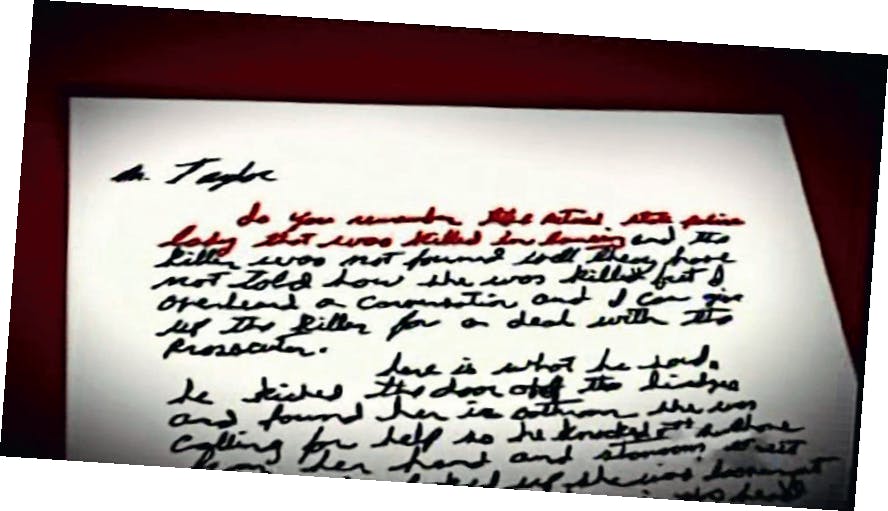 Mr. Taylor
do you remember the retired state police
lady that was killed in lansing and the
killer was not found well they have
not told how she was killed but I
overheard a conversation and I can give
up the killer for a deal with the
Prosecutor.
here is what he said.
he kicked the door off the hinges
and found her in bathroom she was
calling for help so he knocked the phone
from her hand and
up she was
his head